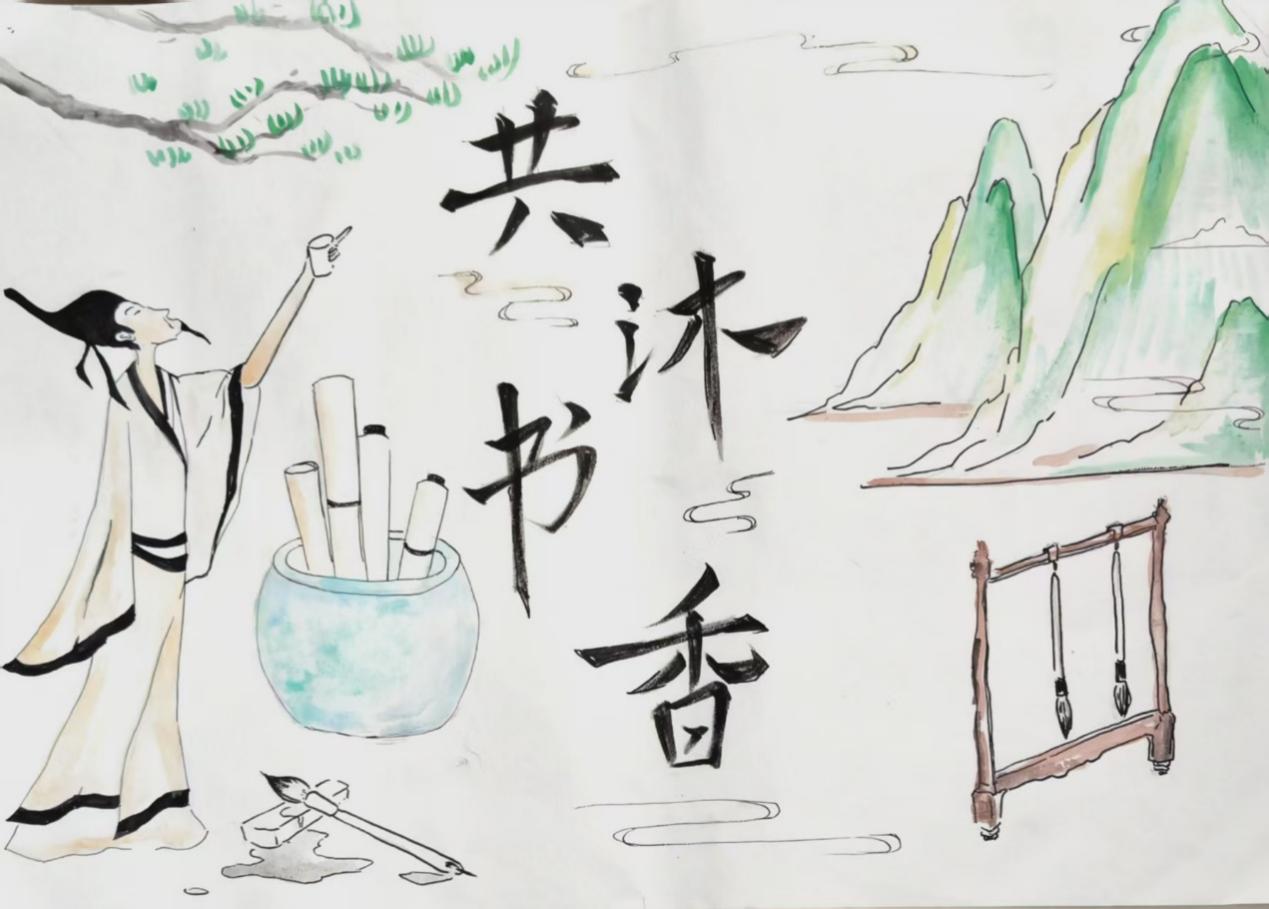 共沐书香